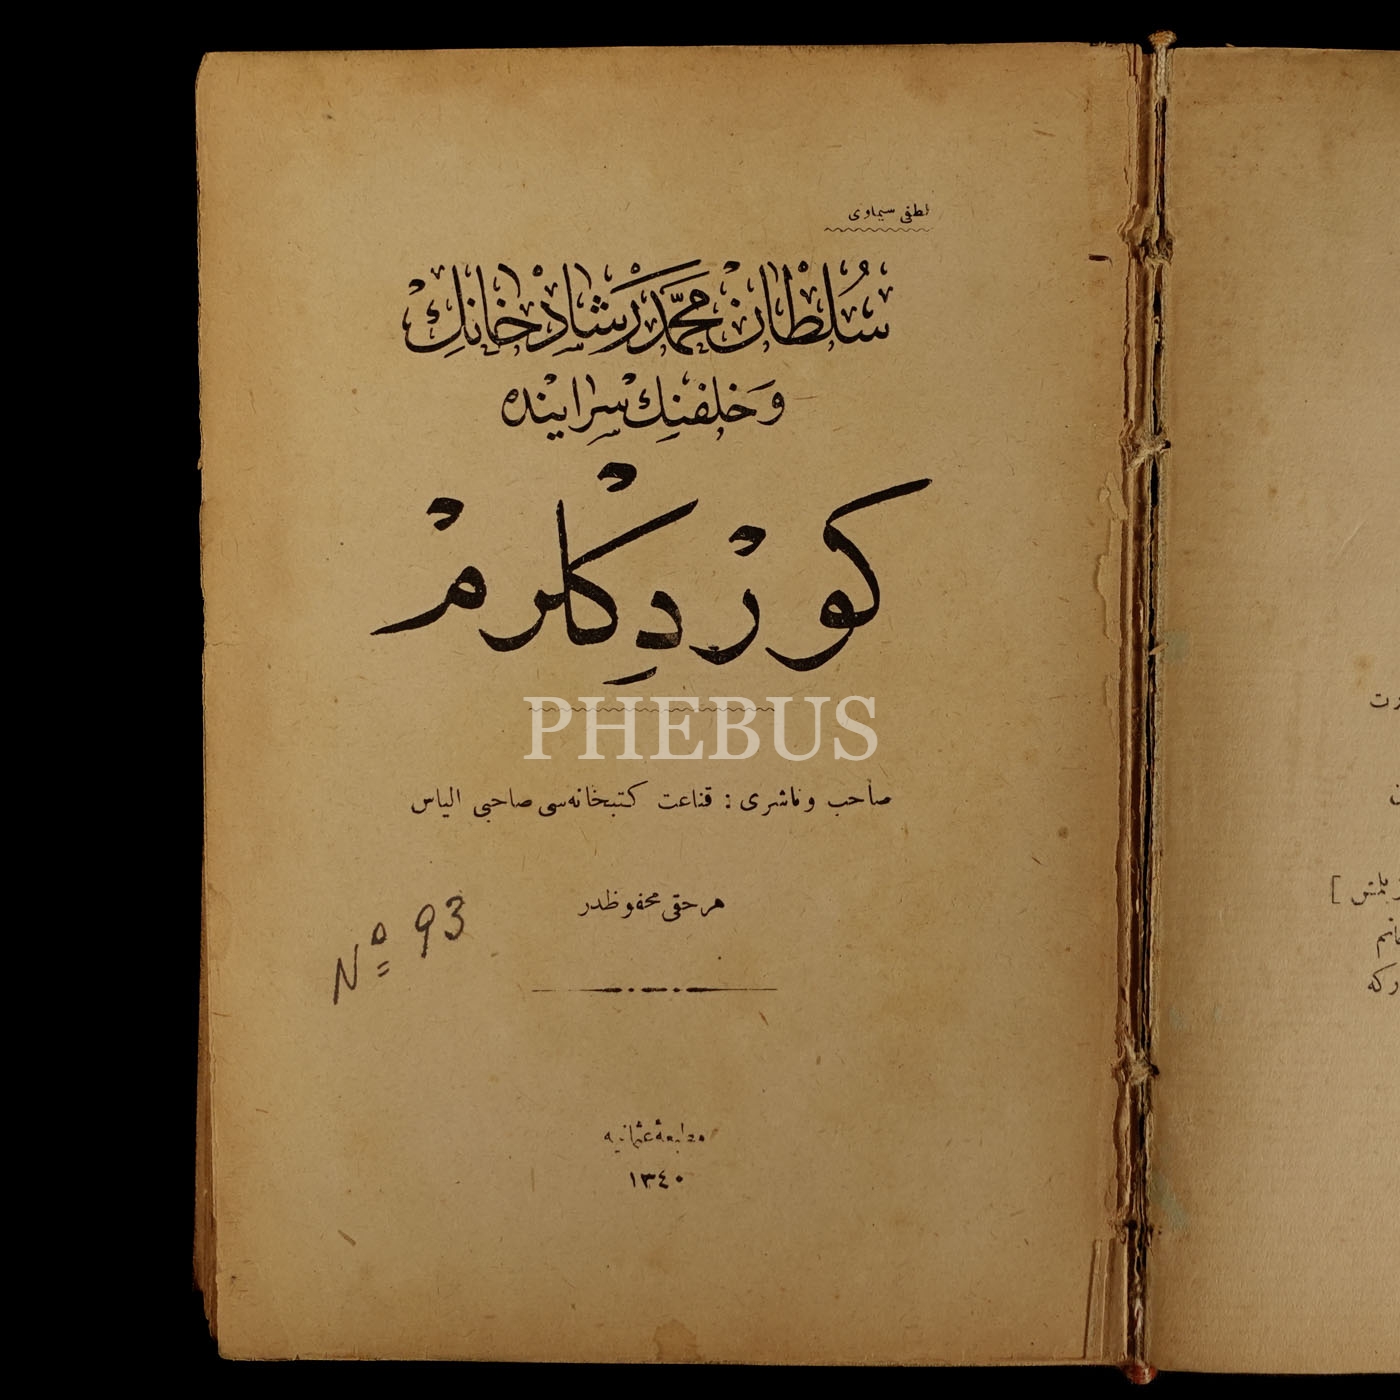 لطفی سیماوی
سُلْطَان مُحَمَّد رَشَاد خَانِك
وَخلفنِك سراينده
كوردكلرم
PHEBUS
صاحب و ناشری : قناعت كتبخانه‌سی صاحبی الیاس
هر حقی محفوظدر
Nº 93
مطبعهٔ عثمانیه
١٣٤٠